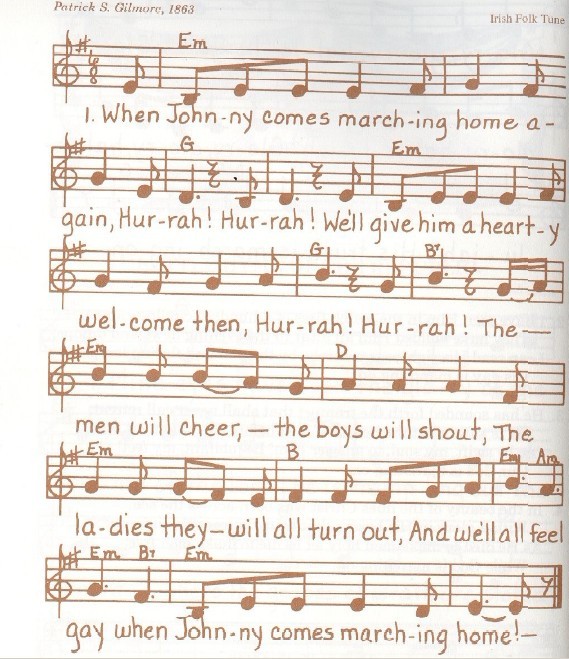 Patrick S. Gilmore, 1863
Irish Folk Tune
6
8
Em
1. When John-ny comes march-ing home a-
G Em
gain, Hur-rah! Hur-rah! We'll give him a heart-y
G B7
wel-come then, Hur-rah! Hur-rah! The—
Em D
men will cheer,— the boys will shout, The
Em B Em Am
la-dies they—will all turn out, And we'll all feel
Em B7 Em
gay when John-ny comes march-ing home!—